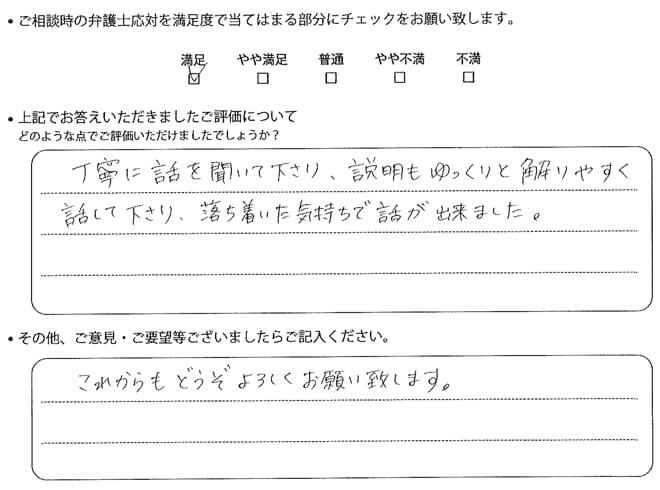 • ご相談時の弁護士応対を満足度で当てはまる部分にチェックをお願い致します。
満足 やや満足 普通 やや不満 不満
☑ □ □ □ □
• 上記でお答えいただきましたご評価について
どのような点でご評価いただけましたでしょうか？
丁寧に話を聞いて下さり、説明もゆっくりと解りやすく
話して下さり、落ち着いた気持ちで話が出来ました。
• その他、ご意見・ご要望等ございましたらご記入ください。
これからもどうぞよろしくお願い致します。